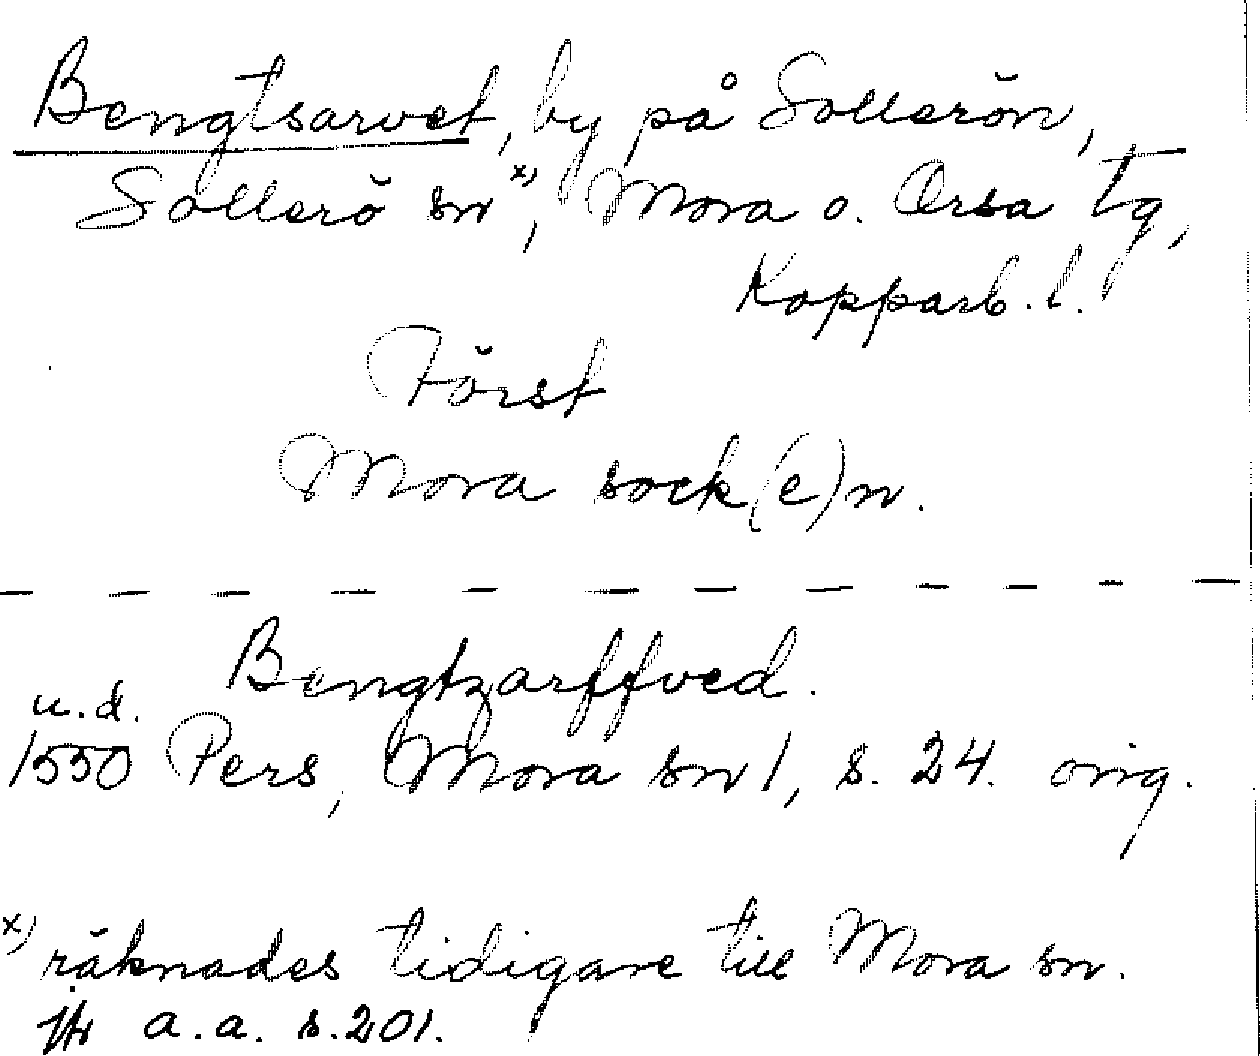 Bengtsarvet, by på Sollerön,
Sollerö sn x), Mora o. Orsa tg,
Kopparb. l.
Först
Mora sock(e)n.
Bengtzarffved.
u.d.
1550 Pers, Mora sn 1, s. 24. orig.
x) räknades tidigare till Mora sn.
jfr a.a. s. 201.